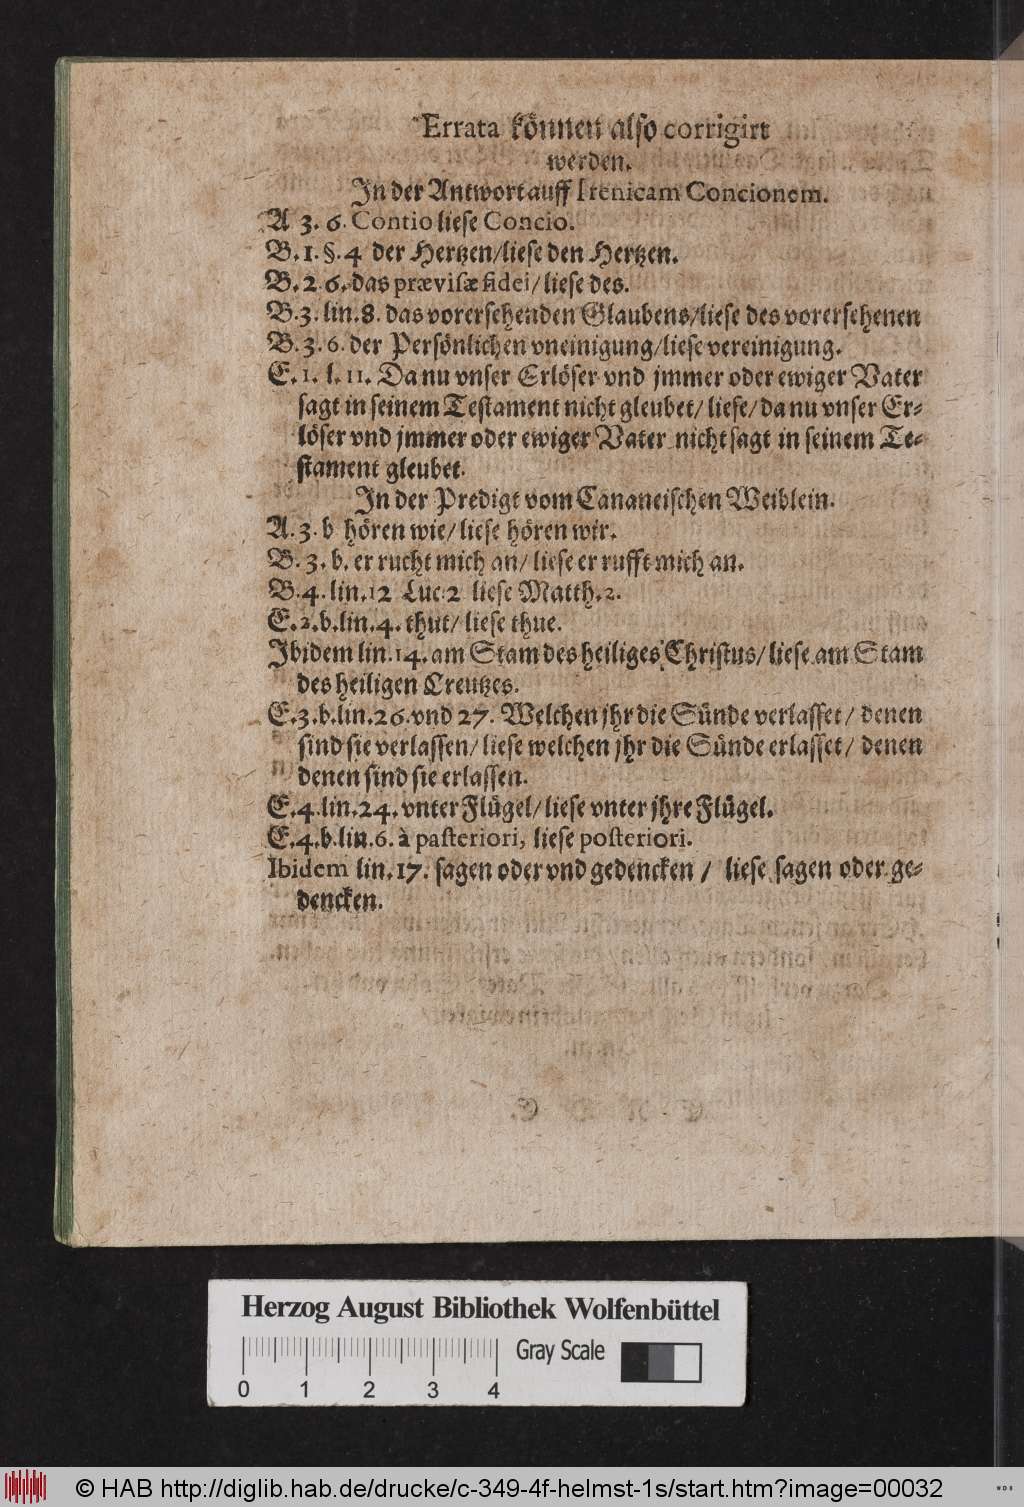 Errata können also corrigirt
werden.
In der Antwort auff Irenicam Concionem.
A 3. 6. Contio liese Concio.
B. 1. §. 4 der Hertzen/liese den Hertzen.
B. 2 6. das prævisæ fidei/liese des.
B. 3. lin. 8. das vorersehenden Glaubens/liese des vorersehenen
B. 3. 6. der Persönlichen vneinigung/liese vereinigung.
E. 1. l. 11. Da nu vnser Erlöser vnd jmmer oder ewiger Vater
sagt in seinem Testament nicht gleubet/ liese/ da nu vnser Er-
löser vnd jmmer oder ewiger Vater nicht sagt in seinem Te-
stament gleubet.
In der Predigt vom Cananeischen Weiblein.
A. 3. b hören wie/ liese hören wir.
B. 3. b. er rucht mich an/ liese er rufft mich an.
B. 4. lin. 12 Luc. 2 liese Matth. 2.
E. 2. b. lin. 4. thut/ liese thue.
Ibidem lin. 14. am Stam des heiliges Christus/ liese am Stam
des heiligen Creutzes.
E. 3. b. lin. 26. vnd 27. Welchen jhr die Sünde verlasset/ denen
sind sie verlassen/ liese welchen jhr die Sünde erlasset/ denen
denen sind sie erlassen.
E. 4. lin. 24. vnter Flügel/ liese vnter jhre Flügel.
E. 4. b. lin. 6. à pasteriori, liese posteriori.
Ibidem lin. 17. sagen oder vnd gedencken / liese sagen oder ge-
dencken.
Herzog August Bibliothek Wolfenbüttel
Gray Scale
0 1 2 3 4
© HAB http://diglib.hab.de/drucke/c-349-4f-helmst-1s/start.htm?image=00032